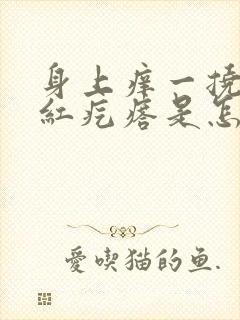 身上痒一挠
红疙瘩是怎
爱喫猫的鱼.